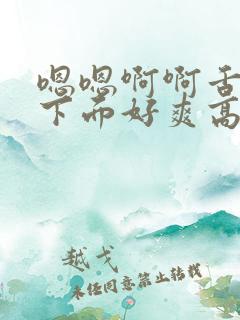 嗯嗯啊啊舌
下面好爽高
越戈
未经同意禁止转载